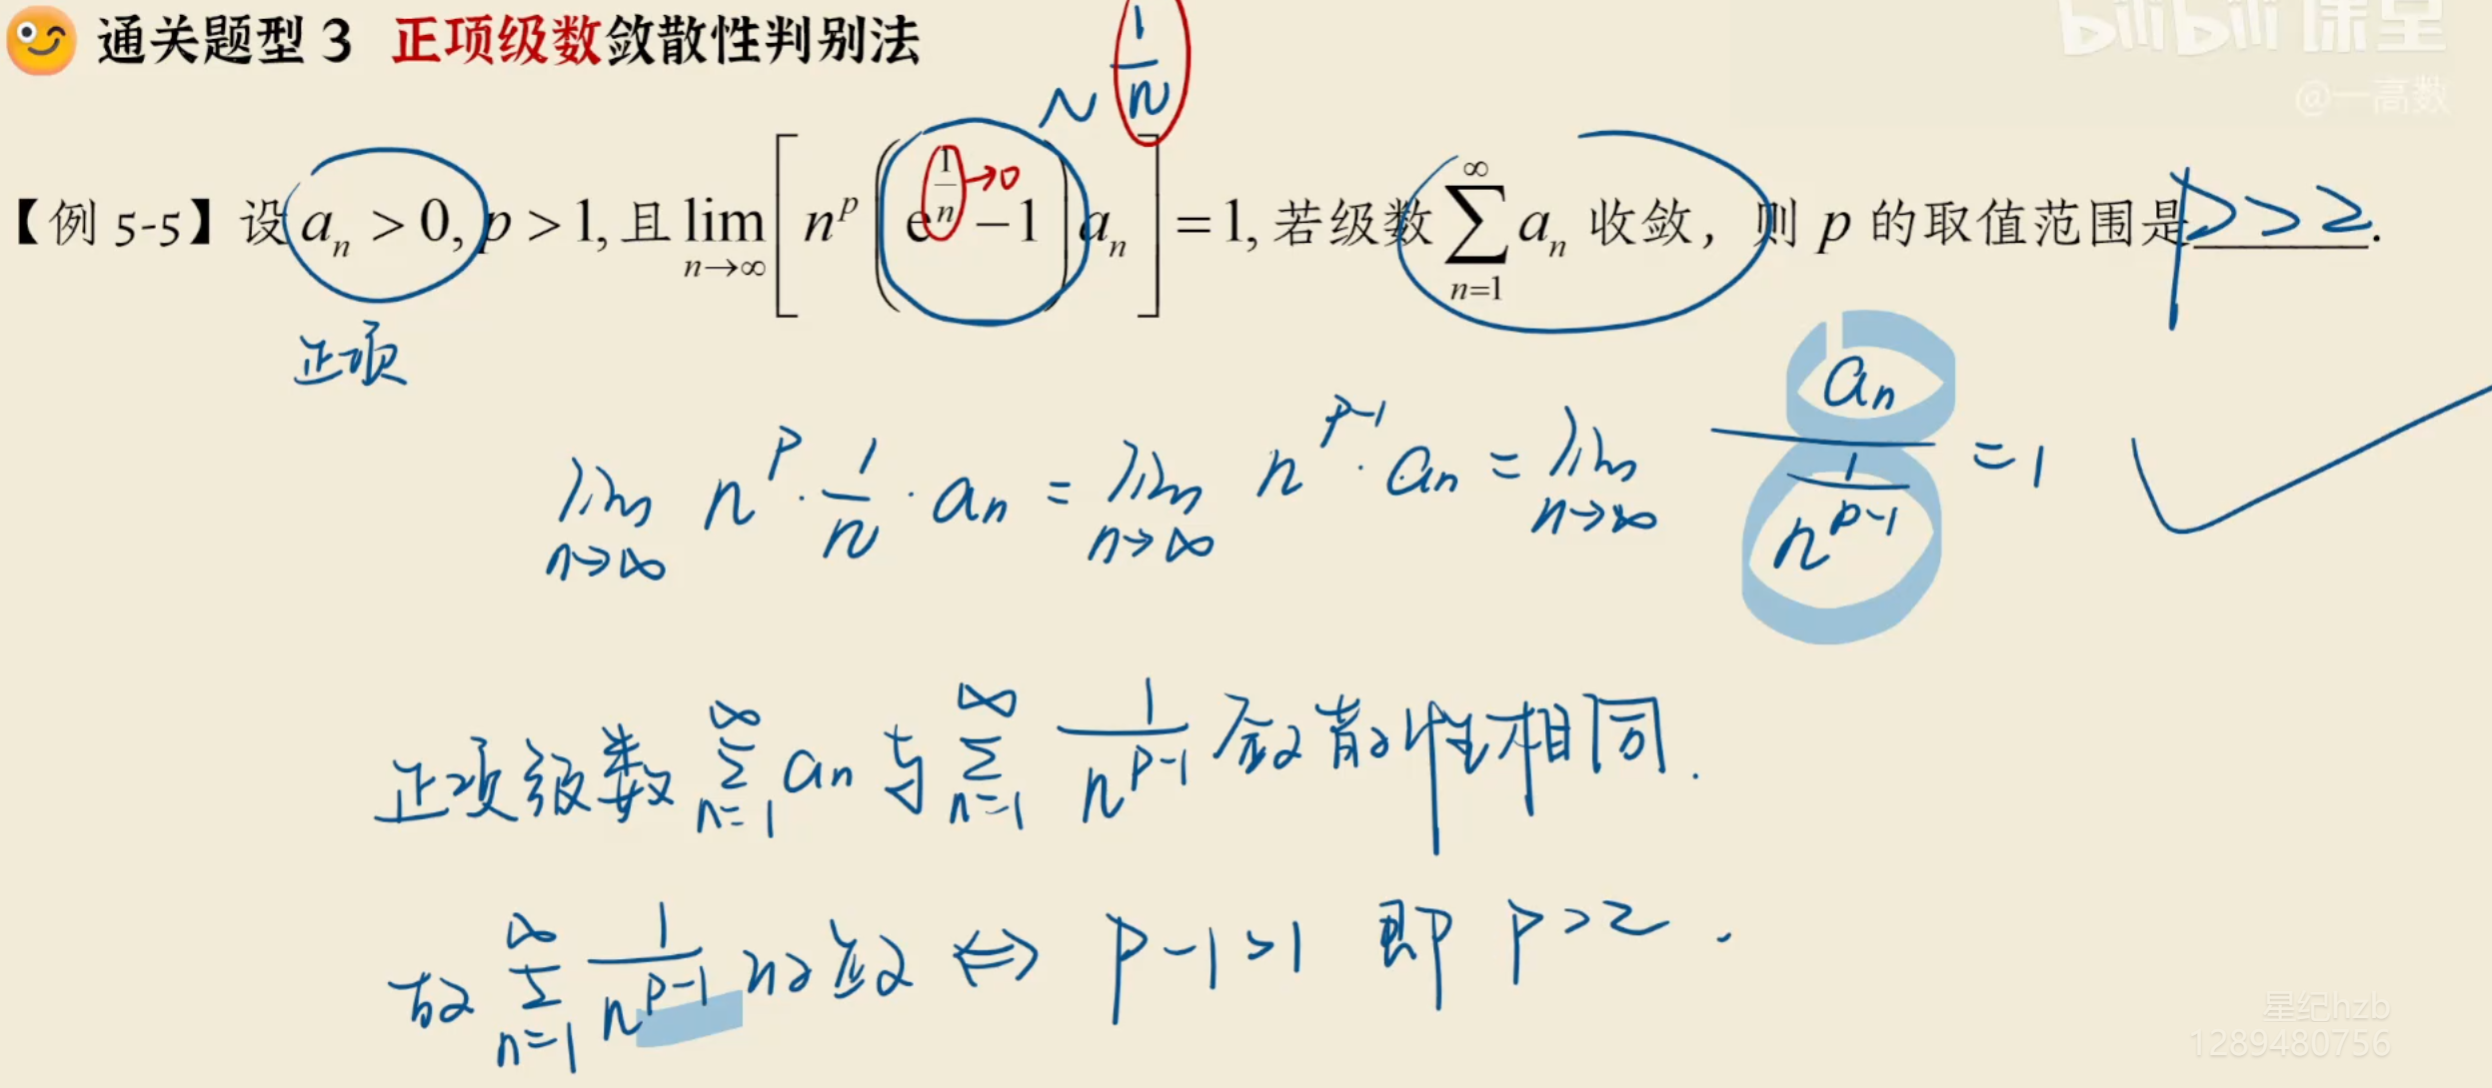 通关题型 3 正项级数敛散性判别法
bilibili 课堂
@一高数
~ 1/n
【例 5-5】设 aₙ > 0, p > 1, 且 lim_{n→∞} [ n^p ( e^{1/n} − 1 ) aₙ ] = 1, 若级数 ∑_{n=1}^{∞} aₙ 收敛，则 p 的取值范围是 p>2.
→0
正项
lim_{n→∞} n^p · 1/n · aₙ = lim_{n→∞} n^{p-1} · aₙ = lim_{n→∞} aₙ / (1/n^{p-1}) = 1
正项级数 ∑_{n=1}^{∞} aₙ 与 ∑_{n=1}^{∞} 1/n^{p-1} 敛散性相同.
故 ∑_{n=1}^{∞} 1/n^{p-1} 收敛 ⇔ p-1>1 即 p>2.
星纪hzb
1289480756